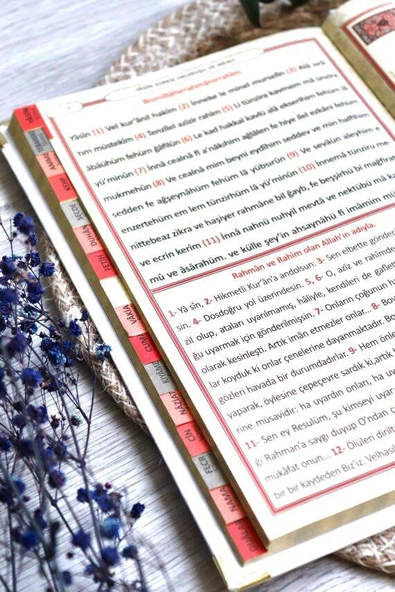 YÂSÎN SÛRESİ OKUNUŞU VE MEÂLİ
Bismillâhirrahmânirrahîm.
Yâsîn (1) Vel kur'ânil hakîm (2) İnneke le minel murselîn (3) Alâ sırâ
tım müstekîm (4) Tenzîlel azîzir rahîm (5) Li tünzira kavmem mâ ünzira
âbâühüm fehüm ğâfilûn (6) Le kad hakkal kavlü alâ ekserihim fehüm lâ
yü'minûn (7) İnnâ cealnâ fî a'nâkıhim ağlâlen fe hiye ilel ezkâni fehüm
mukmehûn (8) Ve cealnâ mim beyni eydîhim seddev ve min halfihim
sedden fe ağşeynâhüm fehüm lâ yübsırûn (9) Ve sevâün aleyhim e
enzertehüm em lem tünzirhüm lâ yü'minûn (10) İnnemâ tünziru me
nittebeaz zikra ve haşiyer rahmâne bil ğayb, fe beşşirhü bi mağfira
ve ecrin kerîm (11) İnnâ nahnü nuhyil mevtâ ve nektübü mâ k
mû ve âsârahüm, ve külle şey'in ahsaynâhü fî imâmim mü
Rahmân ve Rahîm olan Allah'ın adıyla.
1- Yâ sîn, 2- Hikmetli Kur'ân'a andolsun: 3- Sen elbette gönder
sin. 4- Dosdoğru yol üzerindesin. 5, 6- O, azîz ve rahîm
zil olup, ataları uyarılmamış, hâliyle, kendileri de gafle
ğu uyarmak için gönderilmişsin. 7- Onların çoğunun h
olarak kesinleşti. Artık iman etmezler onlar... 8- Bo
lar koyduk ki onlar çenelerine dayanmaktadır. Be
gözleri havada bir durumdadırlar. 9- Hem önle
yaparak, öylesine çepeçevre sardık ki artık
rine müsavidir. ha uyardın onları, ha uy
11- Sen ey Resulüm, şu kimseyi uyar
ği Rahman'a saygı duyup O'ndan ç
mükâfat onun... 12- Ölüleri dirilt
bir bir kaydeden Biz'iz. Velhas
YÂSÎN
AMME
SECDE
DUHÂN
FETİH
VÂKIA
CUMA
NÂZİÂT
CİN
FECR
NAMAZ